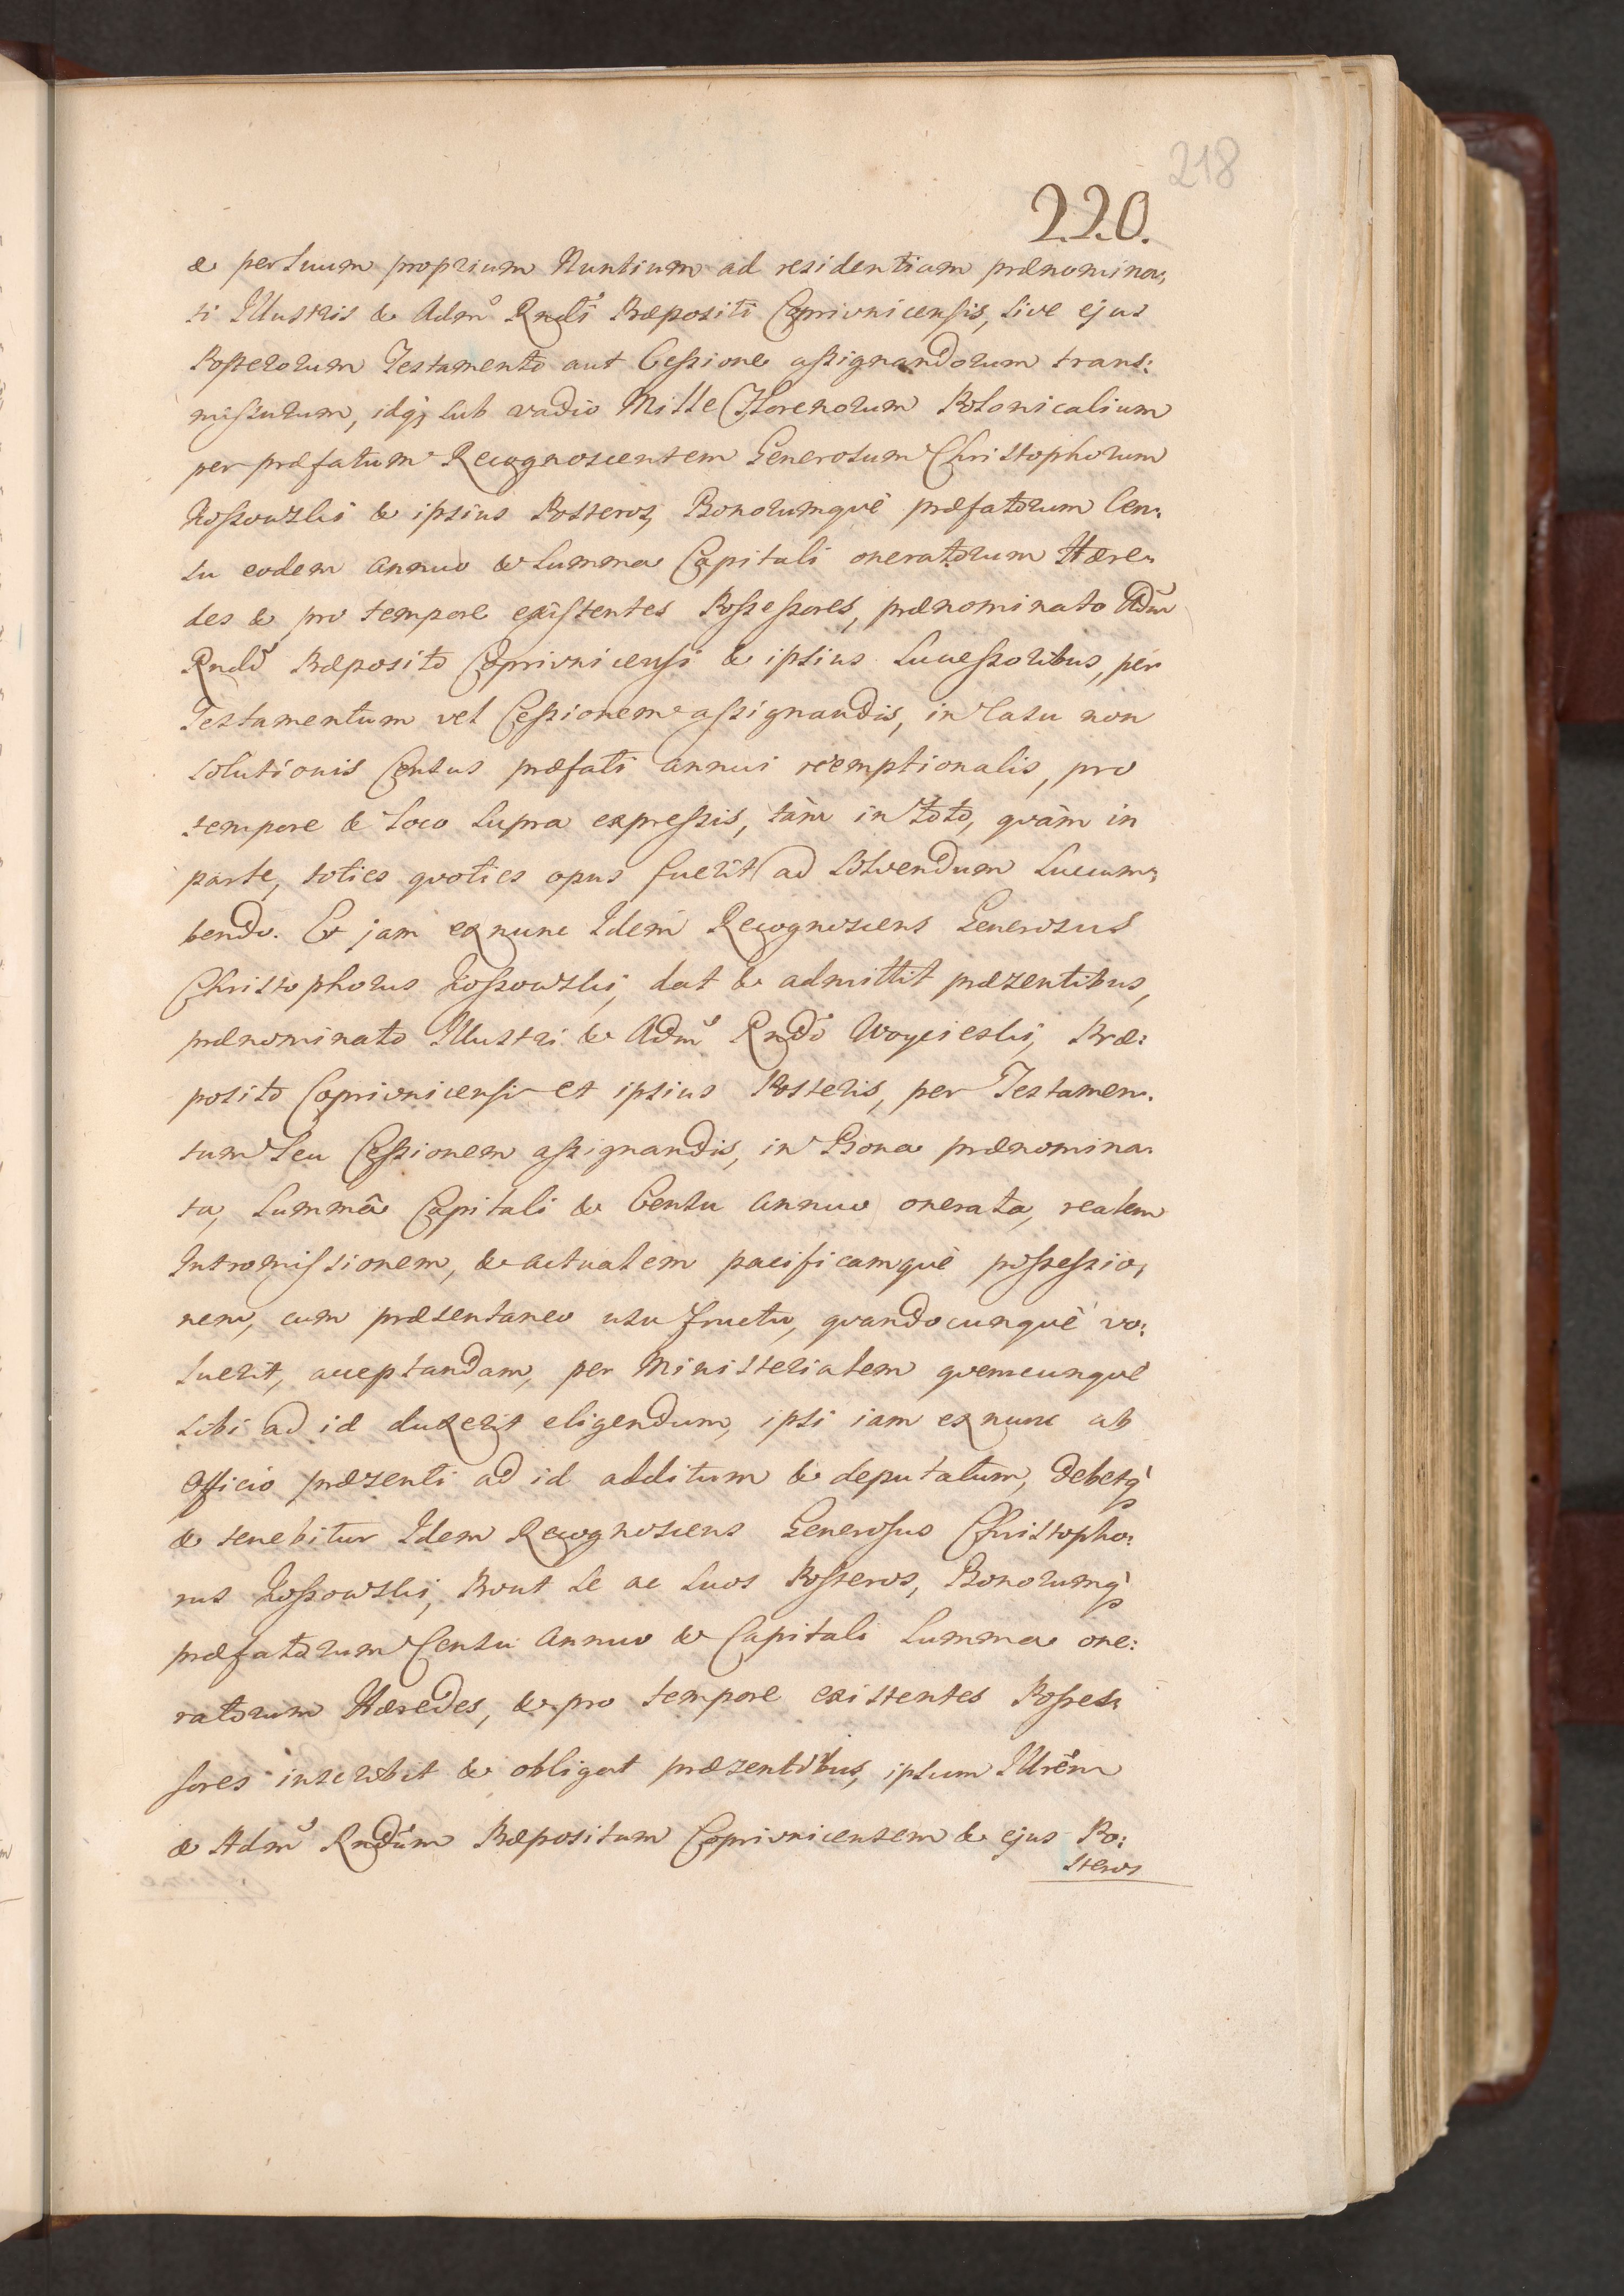 218
220.
& per suum proprium Nuntium ad residentiam prænomina,
ti Illustris & Adm̃ Rndi Præpositi Coprivnicensis, sive ejus
Posterorum Testamento aut Cessione assignandorum trans:
missurum, idq; sub vadio Mille Florenorum Polonicalium
per præfatum Recognoscentem Generosum Christophorum
Kossowski & ipsius Posteros, Bonorumquè præfatorum Cen,
su eodem annuo & summa Capitali oneratorum Hære,
des & pro tempore existentes Possessores, prænominato Adm̃
Rndo Præposito Coprivnicensi & ipsius Successoribus, per
Testamentum vel Cessionem assignandis, in casu non
solutionis Census præfati annui reemptionalis, pro
tempore & loco supra expressis, tàm in toto, quàm in
parte, toties quoties opus fuerit ad solvendum succum,
bendo. Et jam ex nunc Idem Recognoscens Generosus
Christophorus Kossowski, dat & admittit præsentibus,
prænominato Illustri & Adm̃ Rndo Woycieski, Præ:
posito Coprivnicensi et ipsius Posteris, per Testamen,
tum seu Cessionem assignandis, in Bona prænomina,
ta, summâ Capitali & Censu annuo onerata, realem
Intromissionem, & actualem pacificamquè possessio,
nem, cum præsentaneo usu fructu, quandocunquè vo:
luerit, acceptandam, per Ministerialem quemcunquè
sibi ad id duxerit eligendum, ipsi iam ex nunc ab
Officio præsenti ad id additum & deputatum, debetq́
& tenebitur Idem Recognoscens Generosus Christopho:
rus Kossowski, Prout se ac suos Posteros, Bonorumq́
præfatorum Censu annuo & Capitali summa one:
ratorum Hæredes, & pro tempore existentes Posses,
sores inscribit & obligat præsentibus, ipsum Illrem
& Adm̃ Rndum Præpositum Coprivnicensem & ejus Po:
steros